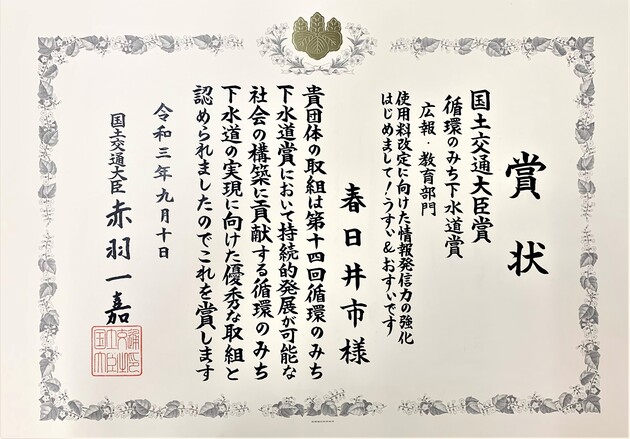 賞状
国土交通大臣賞
循環のみち下水道賞
広報・教育部門
使用料改定に向けた情報発信力の強化
はじめまして！うすい＆おすいです
春日井市様
貴団体の取組は第十四回循環のみち
下水道賞において持続的発展が可能な
社会の構築に貢献する循環のみち
下水道の実現に向けた優秀な取組と
認められましたのでこれを賞します
令和三年九月十日
国土交通大臣 赤羽一嘉